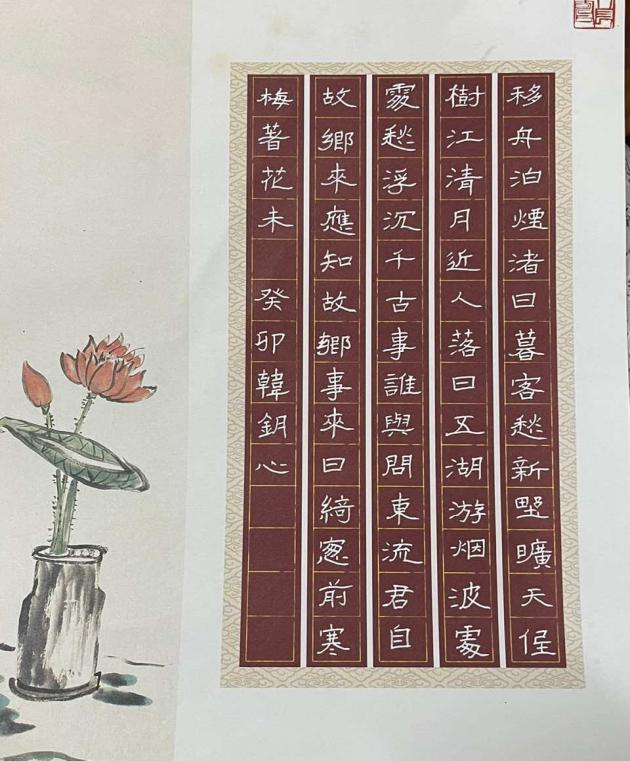 移舟泊煙渚日暮客愁新野曠天低
樹江清月近人落日五湖游烟波處
處愁浮沉千古事誰與問東流君自
故鄉來應知故鄉事來日綺窻前寒
梅著花未 癸卯韓鈅心